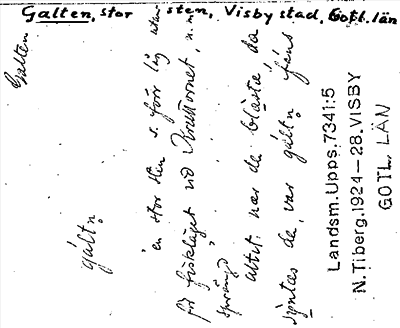 Galten, stor sten, Visby stad, Gotl. län
Galten
gált^n
en stor sten s. förr låg utan
för fiskläget vid Kruttornet, n.m.
sprängd
altət nær de blåste da
syntes de, var gált^n fans
Landsm. Upps. 7341:5
N. Tiberg. 1924–28. VISBY
GOTL. LÄN